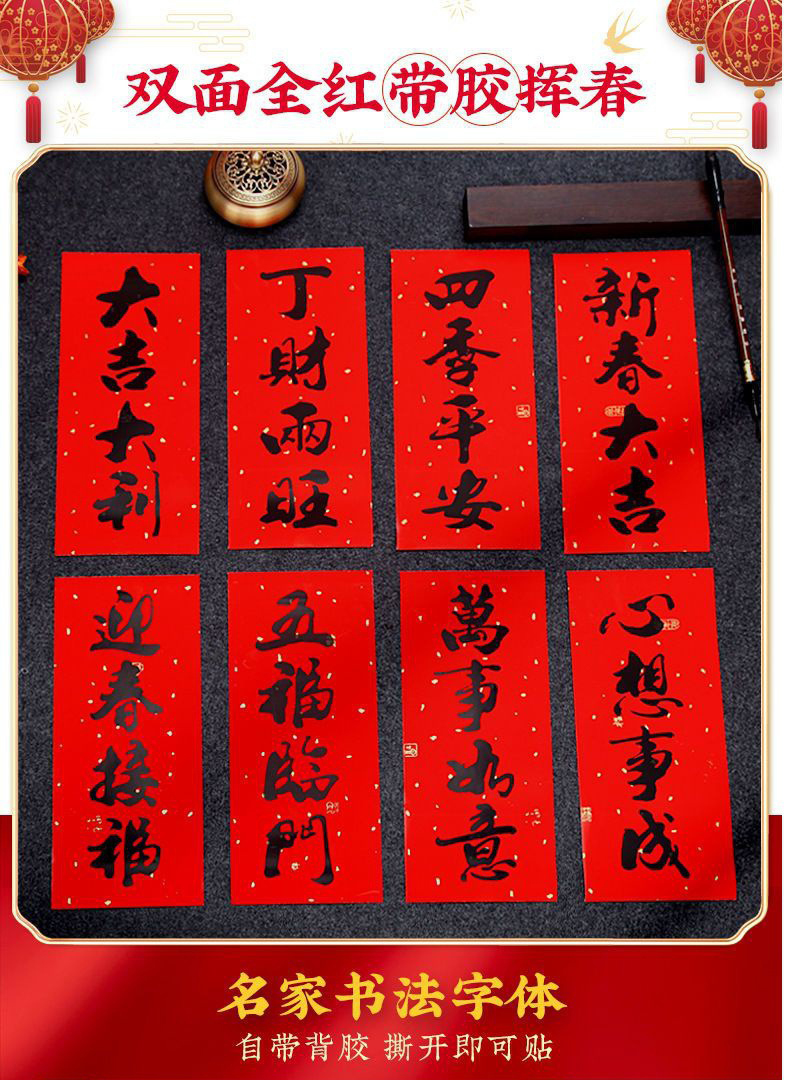 双面全红带胶挥春
大吉大利
丁財兩旺
四季平安
新春大吉
迎春接福
五福臨門
萬事如意
心想事成
名家书法字体
自带背胶 撕开即可贴